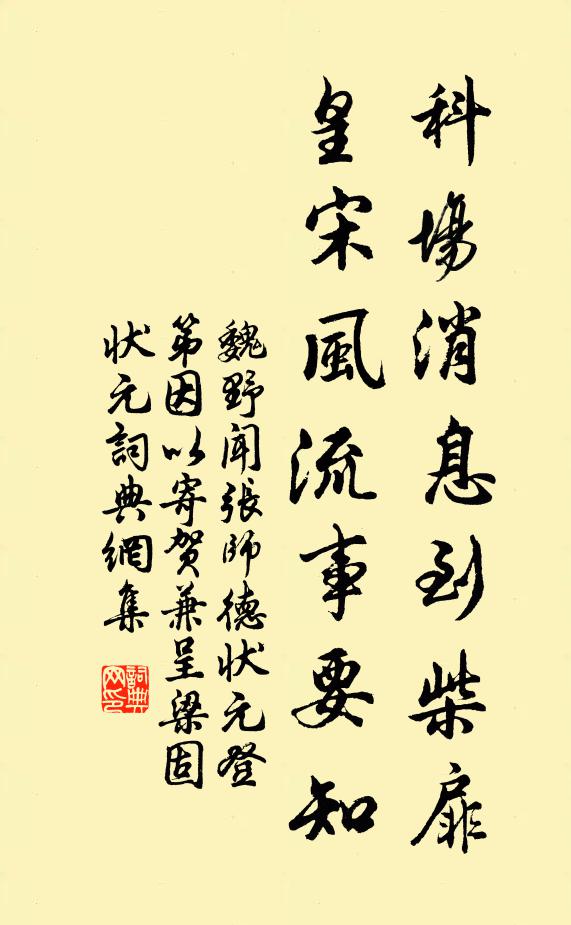 科場消息到柴扉
皇宋風流事要知
魏野聞張師德状元登
第因以寄贺兼呈梁固
状元詞典網集
詞典网印